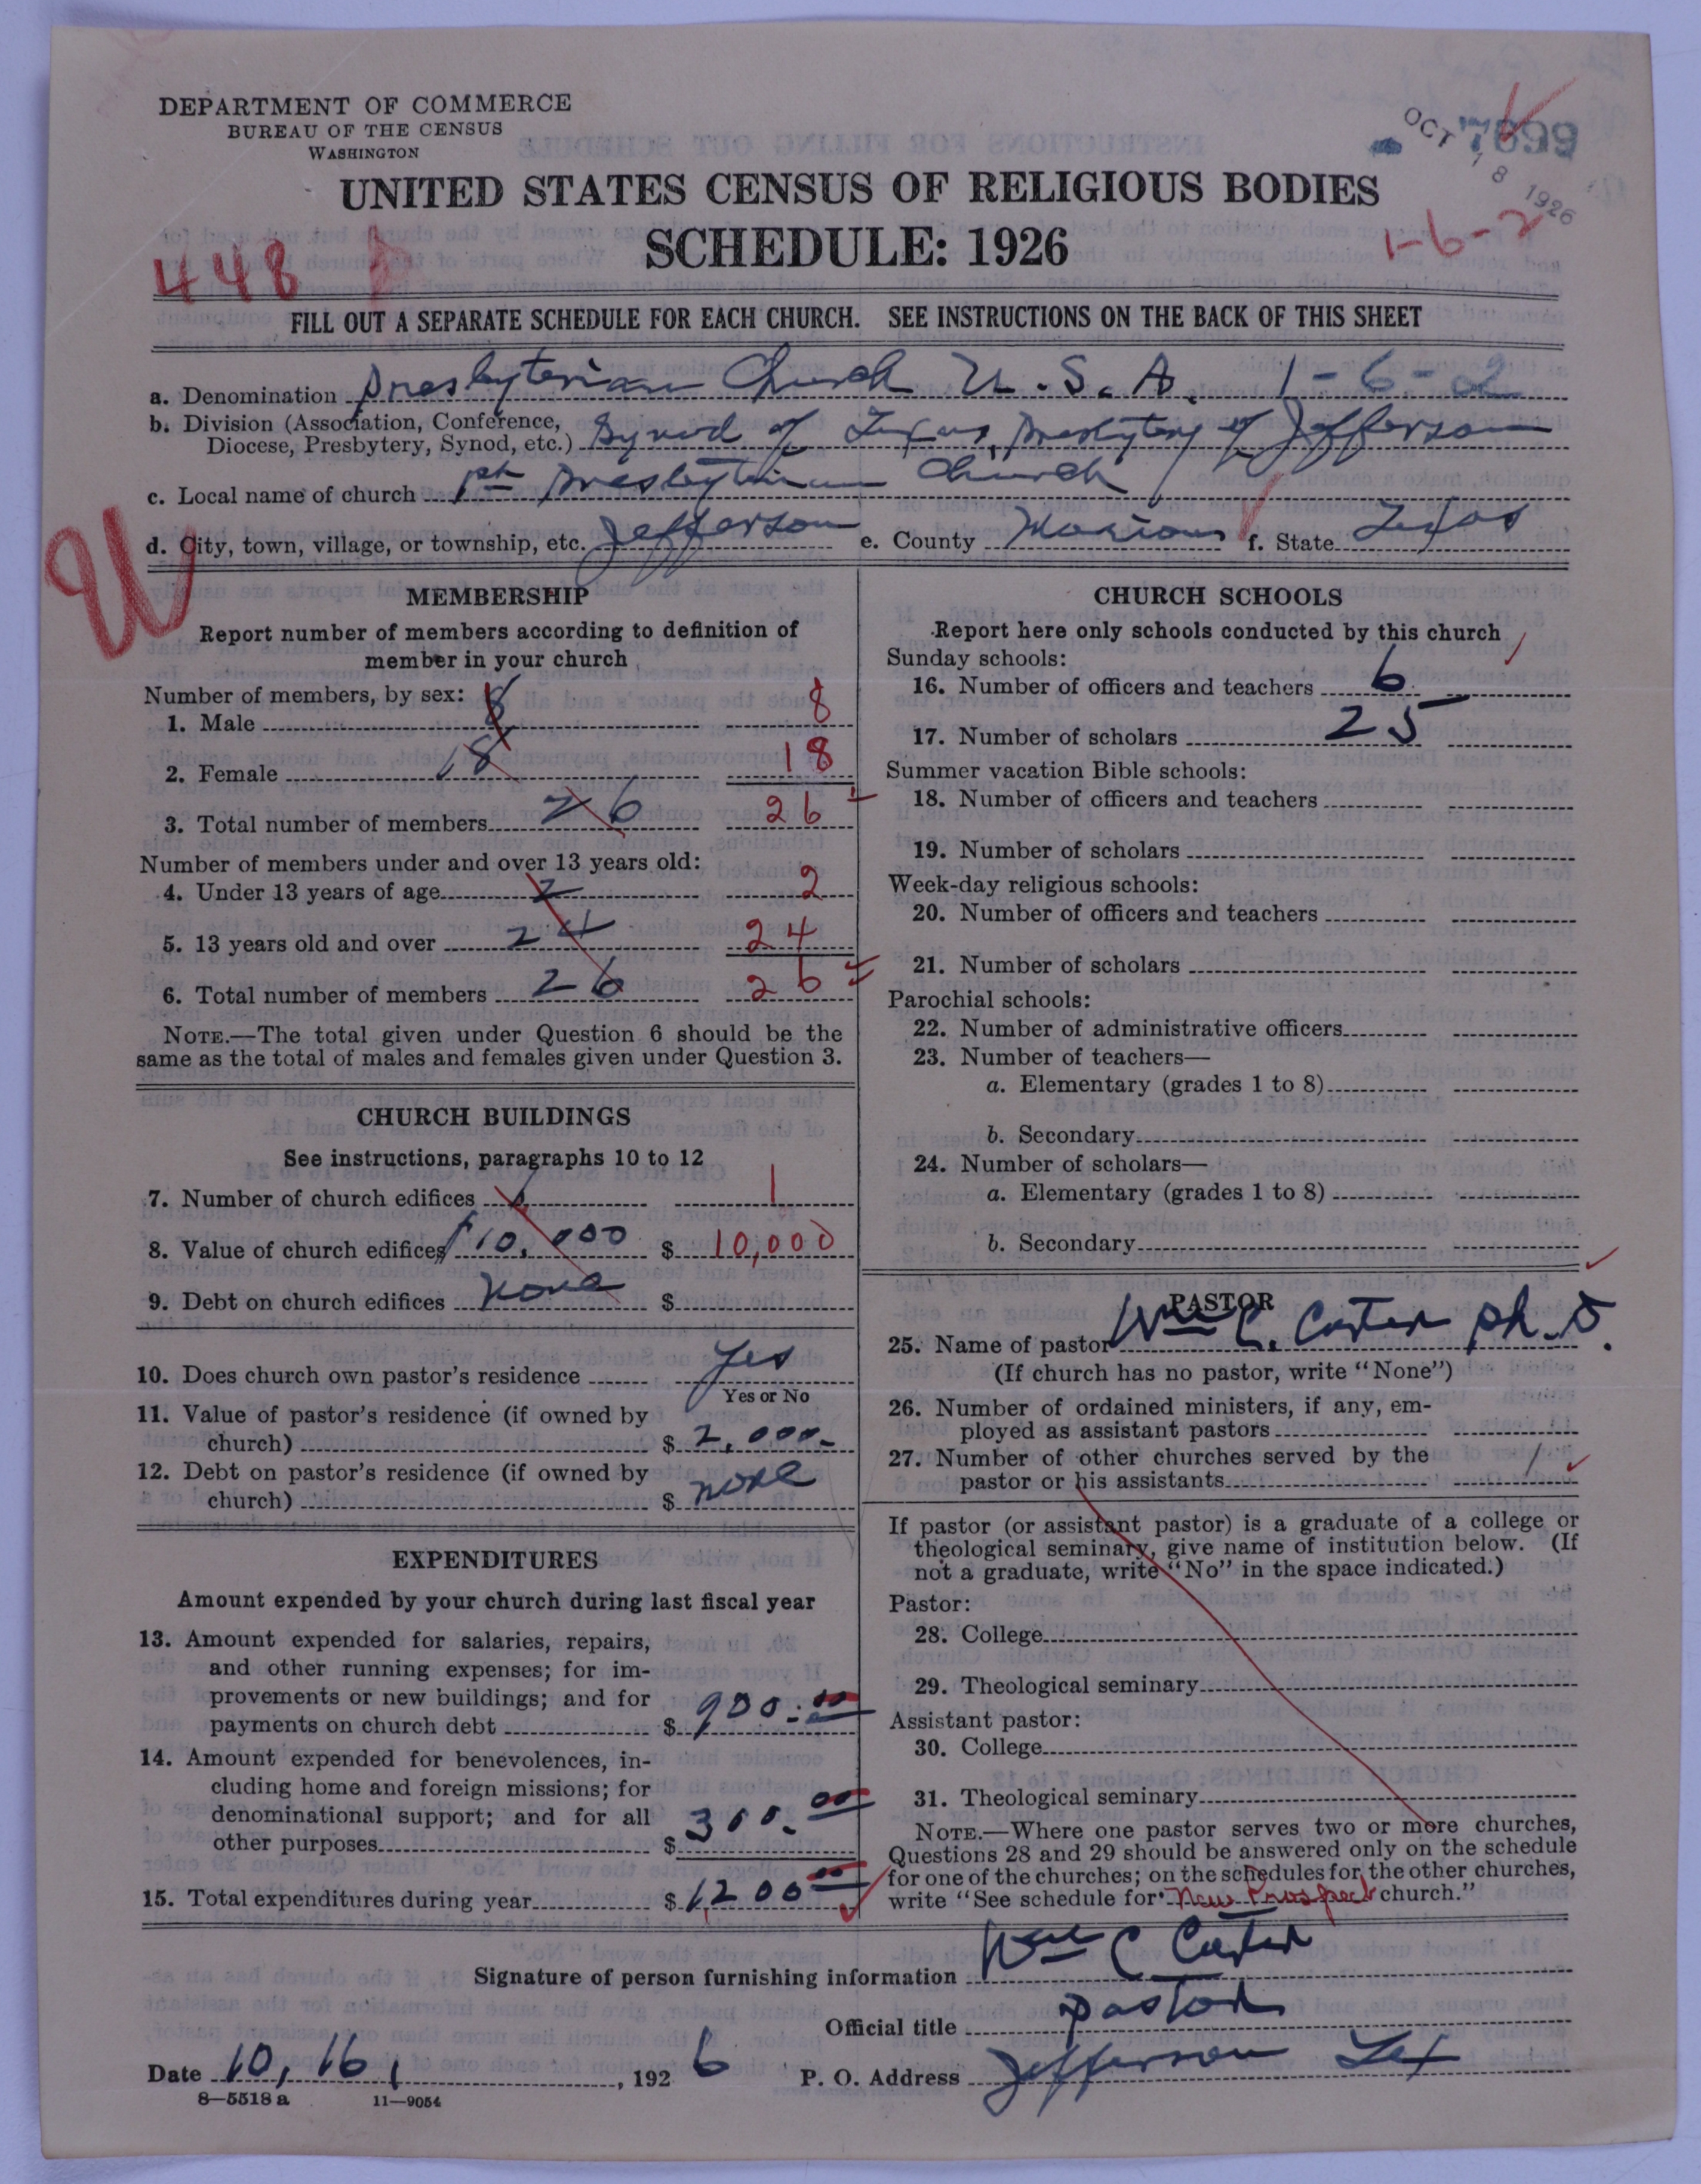 DEPARTMENT OF COMMERCE
BUREAU OF THE CENSUS
WASHINGTON
7699
OCT 18 1926
UNITED STATES CENSUS OF RELIGIOUS BODIES
SCHEDULE: 1926
448
1-6-2
FILL OUT A SEPARATE SCHEDULE FOR EACH CHURCH. SEE INSTRUCTIONS ON THE BACK OF THIS SHEET
a. Denomination Presbyterian Church U.S.A. 1-6-02
b. Division (Association, Conference,
Diocese, Presbytery, Synod, etc.) Synod of Texas, Presbytery of Jefferson
c. Local name of church Presbyterian Church
d. City, town, village, or township, etc. Jefferson e. County Marion f. State Texas
MEMBERSHIP
Report number of members according to definition of
member in your church
Number of members, by sex:
1. Male 8 8
2. Female 18 18
3. Total number of members 26 26
Number of members under and over 13 years old:
4. Under 13 years of age 2 2
5. 13 years old and over 24 24
6. Total number of members 26 26
NOTE.—The total given under Question 6 should be the
same as the total of males and females given under Question 3.
CHURCH BUILDINGS
See instructions, paragraphs 10 to 12
7. Number of church edifices 1 1
8. Value of church edifices $10,000 $ 10,000
9. Debt on church edifices None $
10. Does church own pastor's residence Yes
Yes or No
11. Value of pastor's residence (if owned by
church) $ 2,000-
12. Debt on pastor's residence (if owned by
church) $ none
EXPENDITURES
Amount expended by your church during last fiscal year
13. Amount expended for salaries, repairs,
and other running expenses; for im-
provements or new buildings; and for
payments on church debt $ 900.00
14. Amount expended for benevolences, in-
cluding home and foreign missions; for
denominational support; and for all
other purposes $ 300.00
15. Total expenditures during year $ 1,200 00
CHURCH SCHOOLS
Report here only schools conducted by this church
Sunday schools:
16. Number of officers and teachers 6
17. Number of scholars 25
Summer vacation Bible schools:
18. Number of officers and teachers
19. Number of scholars
Week-day religious schools:
20. Number of officers and teachers
21. Number of scholars
Parochial schools:
22. Number of administrative officers
23. Number of teachers—
a. Elementary (grades 1 to 8)
b. Secondary
24. Number of scholars—
a. Elementary (grades 1 to 8)
b. Secondary
PASTOR
25. Name of pastor Wm C. Carter Ph.D.
(If church has no pastor, write "None")
26. Number of ordained ministers, if any, em-
ployed as assistant pastors
27. Number of other churches served by the
pastor or his assistants 1
If pastor (or assistant pastor) is a graduate of a college or
theological seminary, give name of institution below. (If
not a graduate, write "No" in the space indicated.)
Pastor:
28. College
29. Theological seminary
Assistant pastor:
30. College
31. Theological seminary
NOTE.—Where one pastor serves two or more churches,
Questions 28 and 29 should be answered only on the schedule
for one of the churches; on the schedules for the other churches,
write "See schedule for New Prospect church."
Signature of person furnishing information Wm C Carter
Official title Pastor
Date 10, 16, 1926 P. O. Address Jefferson Tex
8—5518 a 11—9054